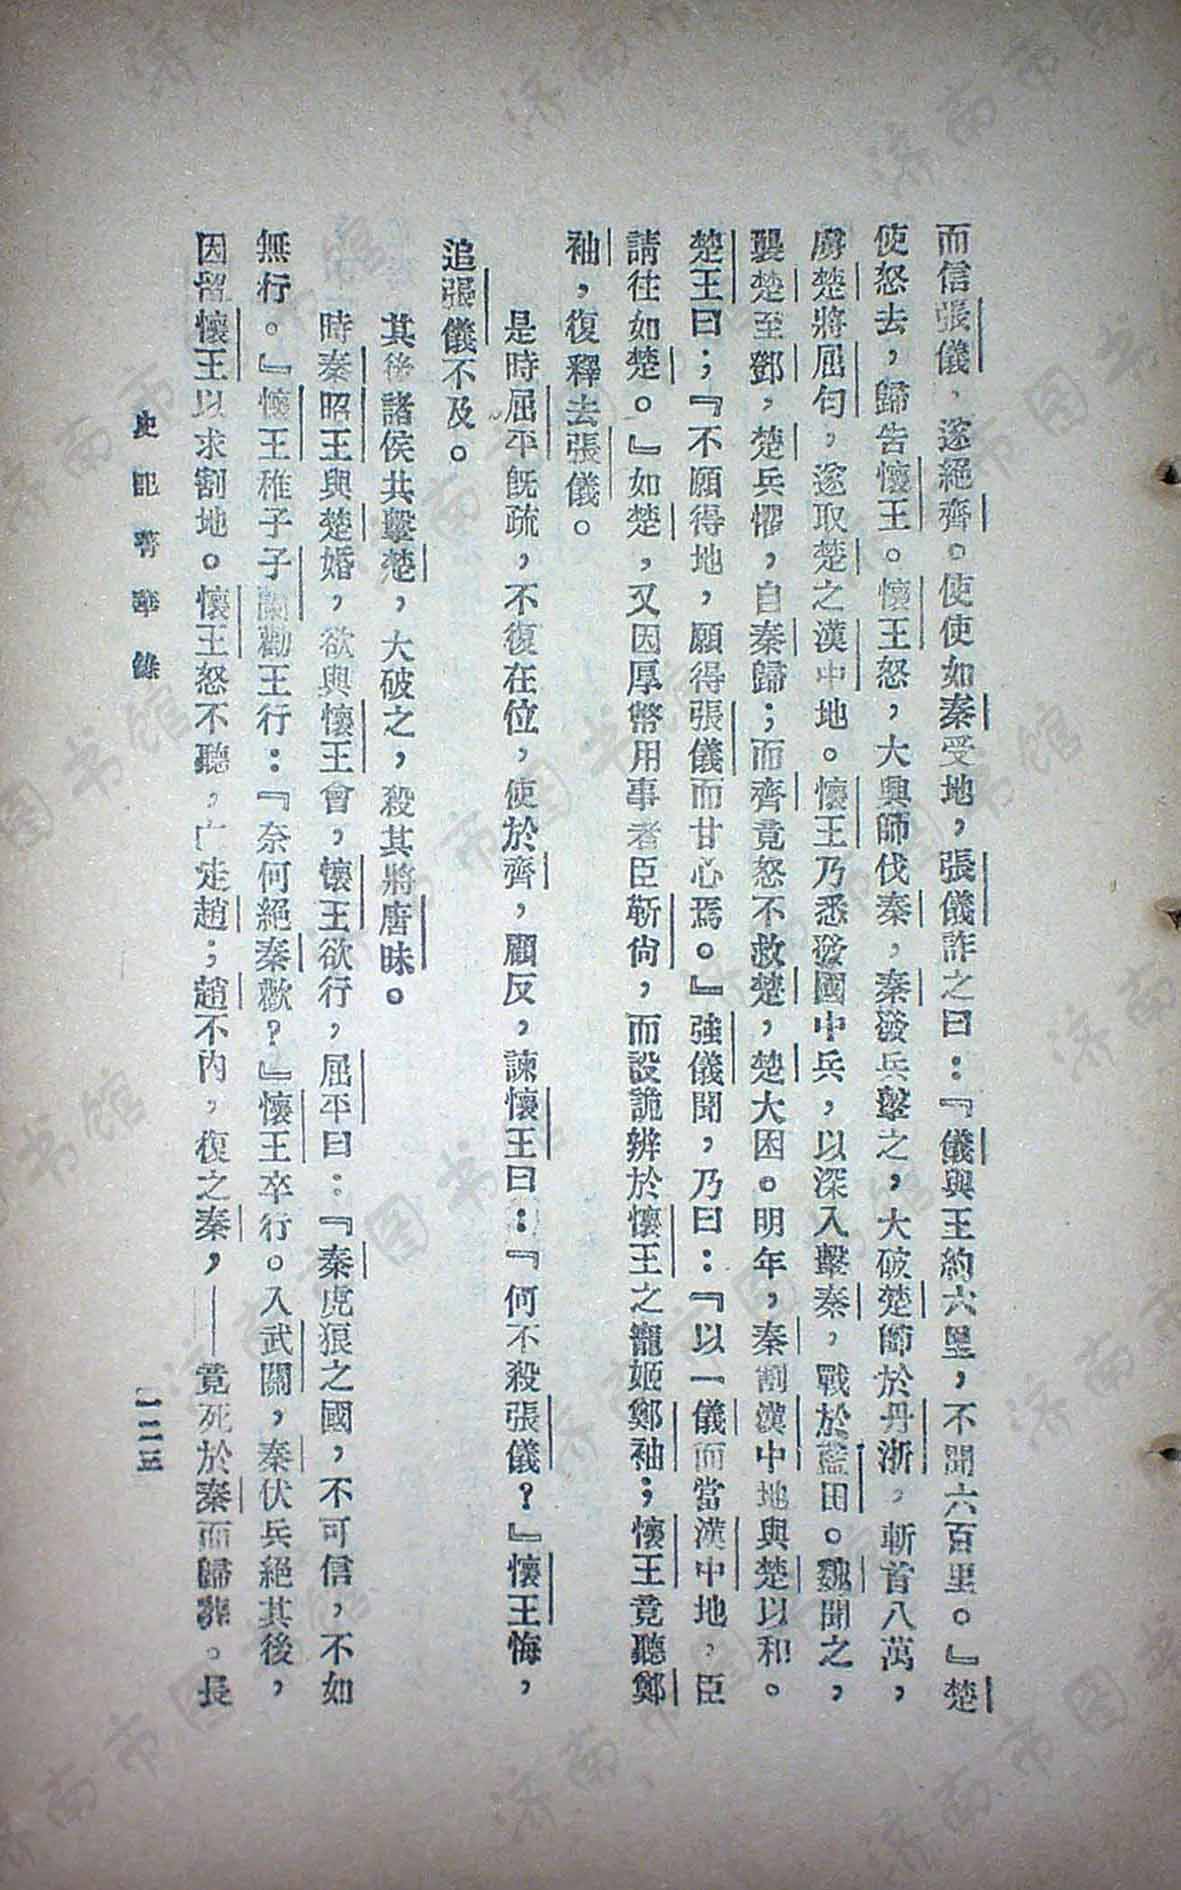 而信張儀，遂絕齊。使使如秦受地，張儀詐之曰：『儀與王約六里，不聞六百里。』楚
使怒去，歸告懷王。懷王怒，大興師伐秦，秦發兵擊之，大破楚師於丹浙，斬首八萬，
虜楚將屈匄，遂取楚之漢中地。懷王乃悉發國中兵，以深入擊秦，戰於藍田。魏聞之，
襲楚至鄧，楚兵懼，自秦歸；而齊竟怒不救楚，楚大困。明年，秦割漢中地與楚以和。
楚王曰；『不願得地，願得張儀而甘心焉。』強儀聞，乃曰：『以一儀而當漢中地，臣
請往如楚。』如楚，又因厚幣用事者臣靳尙，而設詭辨於懷王之寵姬鄭袖；懷王竟聽鄭
袖，復釋去張儀。
是時屈平旣疏，不復在位，使於齊，顧反，諫懷王曰：『何不殺張儀？』懷王悔，
追張儀不及。
其後諸侯共擊楚，大破之，殺其將唐昧。
時秦昭王與楚婚，欲與懷王會，懷王欲行，屈平曰：『秦虎狼之國，不可信，不如
無行。』懷王稚子子蘭勸王行：『奈何絕秦歡？』懷王卒行。入武關，秦伏兵絕其後，
因留懷王以求割地。懷王怒不聽，亡走趙；趙不內，復之秦，——竟死於秦而歸葬。長
史記菁華錄
一二三
济南市图书馆